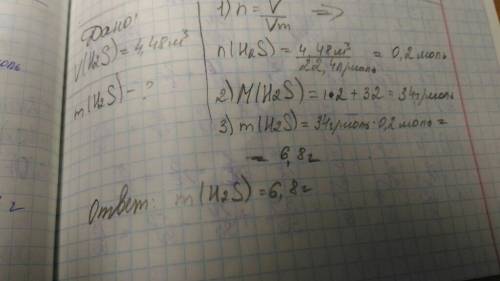 Дано:
V(H2S)=4,48м³
m(H2S)-?
1) n = V/Vm =>
n(H2S) = 4,48м³/22,4 = 0,2моль
2) M(H2S) = 1•2 + 32 = 34г/моль
3) m(H2S) = 34г/моль · 0,2моль =
= 6,8г
Ответ: m(H2S) = 6,8г